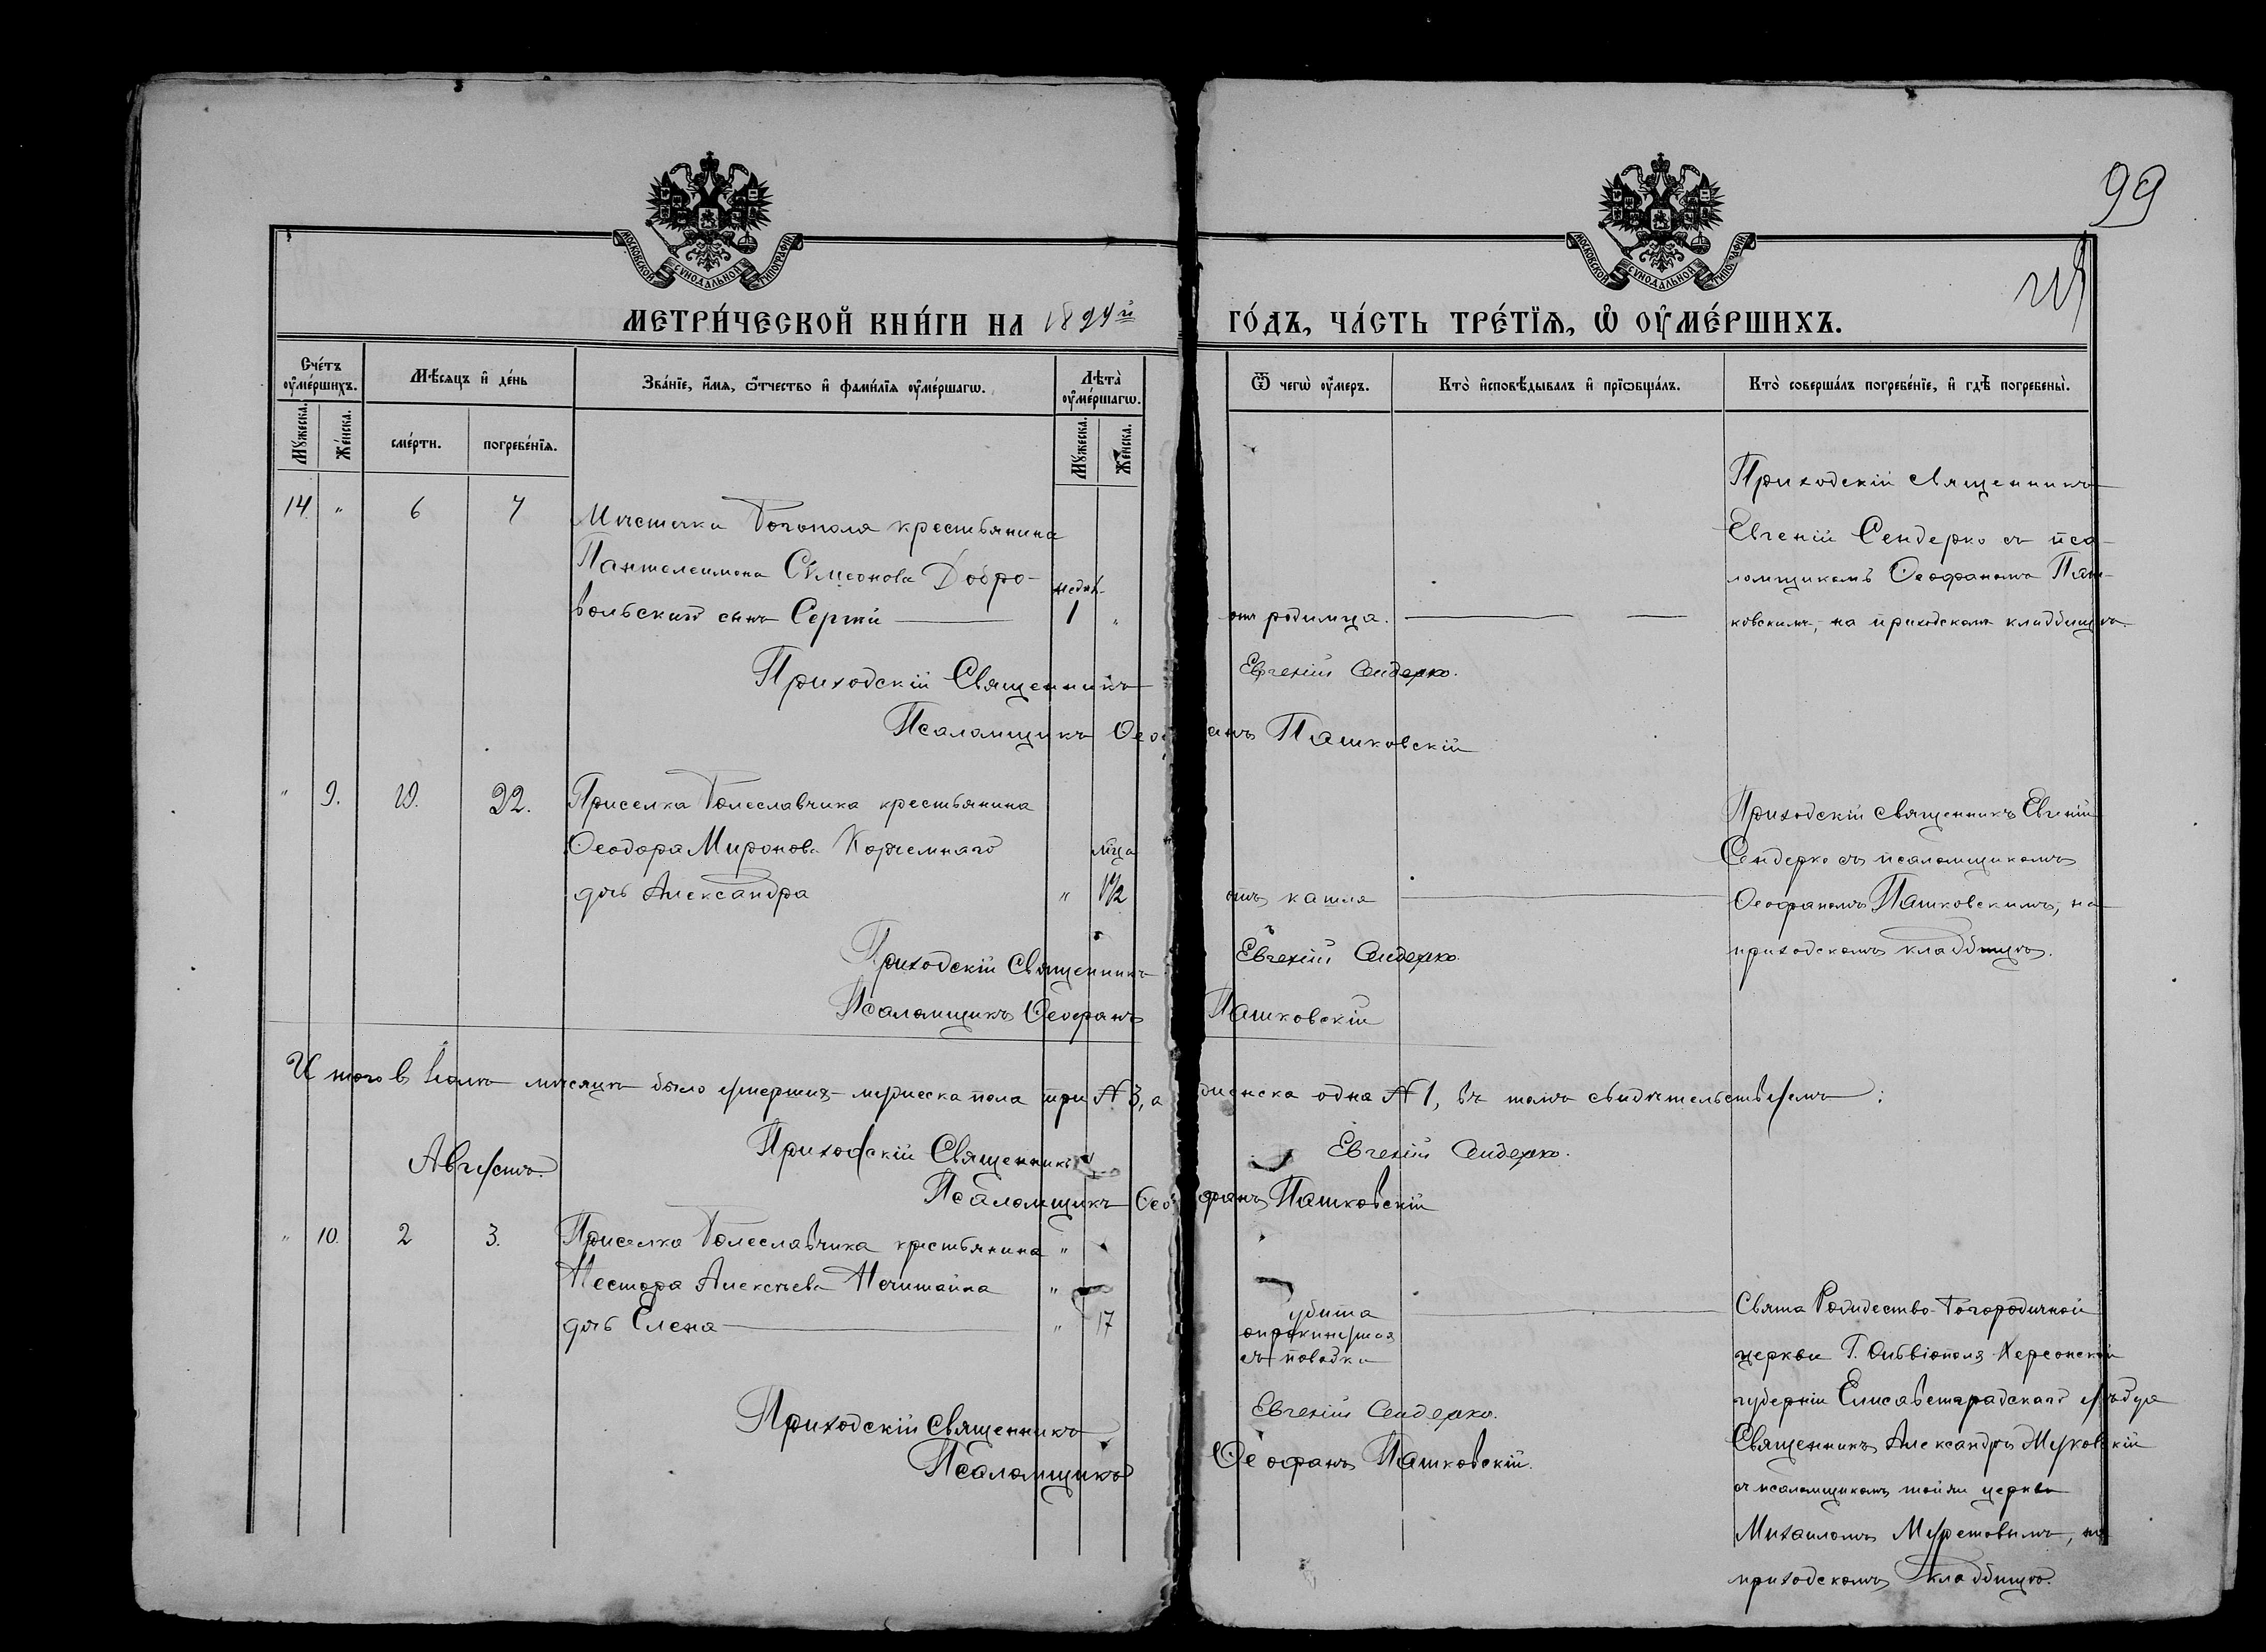 99
МОСКОВСКОЙ СѴНОДАЛЬНОЙ ТИПОГРАФІИ
МОСКОВСКОЙ СѴНОДАЛЬНОЙ ТИПОГРАФІИ
МЕТРИ́ЧЕСКОЙ КНИ́ГИ НА 1894й ГО́ДЪ, ЧА́СТЬ ТРЕ́ТЇѦ, Ѡ҆ ОУ҆МЕ́РШИХЪ.
Сче́тъ оу҆ме́ршихъ.
Мѣ́сѧцъ и҆ де́нь
Зва́нїе, и҆́мѧ, ѻ҆́тчество и҆ фами́лїѧ оу҆ме́ршагѡ.
Лѣ́та оу҆ме́ршагѡ.
Ѿ чегѡ̀ оу҆́меръ.
Кто̀ и҆сповѣ́дывалъ и҆ прїѡбща́лъ.
Кто̀ соверша́лъ погребе́нїе, и҆ гдѣ̀ погребены̀.
Мꙋ́жеска.
Же́нска.
сме́рти.
погребе́нїѧ.
Мꙋ́жеска.
Же́нска.
14 " 6 7
Мѣстечка Богополя крестьянина
Пантелеимона Сѵмеонова Добро-
вольскаго сынъ Сергій
недѣл.
1 "
отъ родимца.
Приходскій священникъ
Евгеній Сендерко съ пса-
ломщикомъ Ѳеофаномъ Паш-
ковскимъ, на приходскомъ кладбищѣ.
Приходскій Священникъ Евгеній Сендерко.
Псаломщикъ Ѳеофанъ Пашковскій
" 9. 19. 22.
Приселка Болеславчика крестьянина
Ѳеодора Миронова Корчемнаго
дочь Александра
мца
" 1½
отъ кашля
Приходскій священникъ Евгеній
Сендерко съ псаломщикомъ
Ѳеофаномъ Пашковскимъ, на
приходскомъ кладбищѣ.
Приходскій Священникъ Евгеній Сендерко.
Псаломщикъ Ѳеофанъ Пашковскій
Итого въ Іюлѣ мѣсяцѣ было умершихъ мужеска пола три № 3, а женска одна № 1, въ томъ свидѣтельствуемъ:
Приходскій Священникъ Евгеній Сендерко.
Псаломщикъ Ѳеофанъ Пашковскій
Августъ.
" 10. 2 3.
Приселка Болеславчика крестьянина "
Нестора Алексѣева Нечитайла "
дочь Елена " 17
убита
опрокинувшая
съ повозки
Свято Рождество-Богородичной
церкви Г. Ольвіополя Херсонской
губерніи Елисаветградскаго уѣзда
Священникъ Александръ
съ псаломщикомъ той же церкви
Михаиломъ Муретовымъ, на
приходскомъ кладбищѣ.
Приходскій священникъ Евгеній Сендерко.
Псаломщикъ Ѳеофанъ Пашковскій.